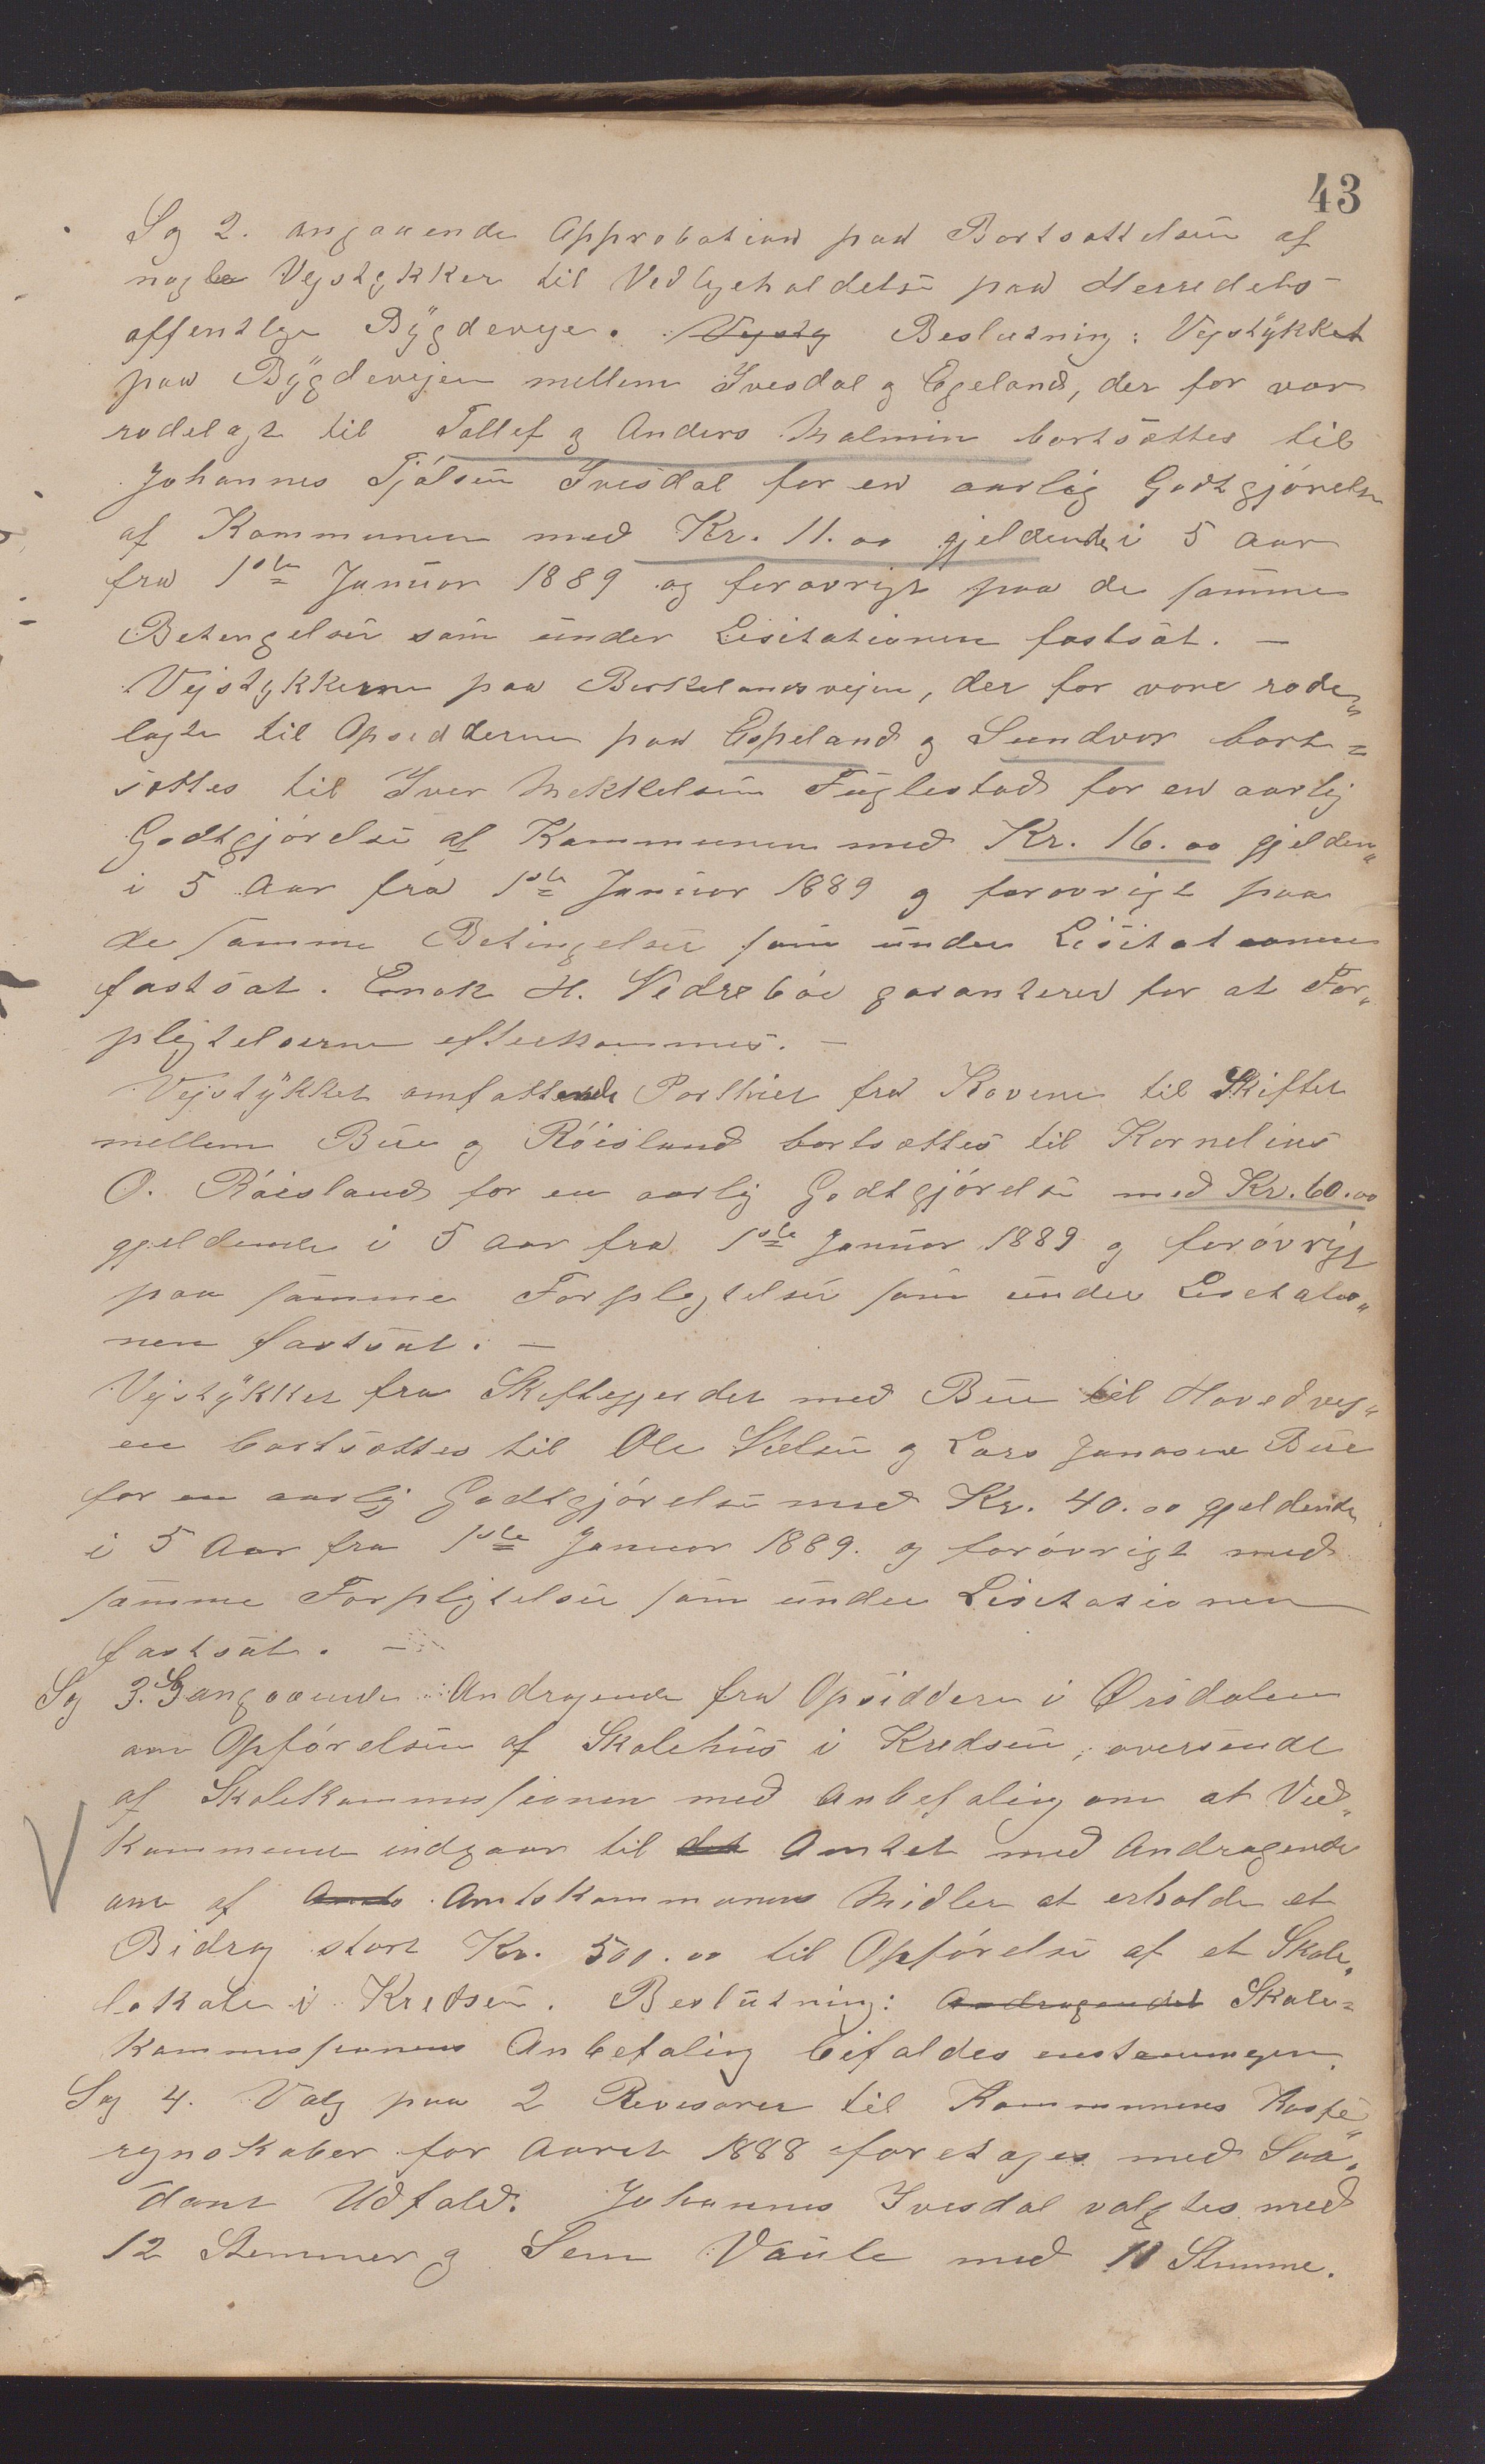 43
Sag 2. angaaende Approbation paa Bortsættelsen af
nogle Vejstykker til Vedligeholdelse paa Herredets
offentlige Bÿgdeveje. Vejsty Beslutning: Vejstÿkket
paa Bÿgdevejen mellem Ivesdal og Egeland, der før var
rodelagt til Tollef og Anders Malmin bortsættes til
Johannes Tjølsen Ivesdal for en aarlig Godtgjørelse
af Kommunen med Kr. 11.00 gjeldende i 5 Aar
fra 1ste Januar 1889 og forøvrigt paa de samme
Betingelser som under Lisitationen fastsat. —
Vejstykkerne paa Birkelandsvejen, der før vare rode„
lagte til Opsidderne paa Espeland og Sundvor bort=
sættes til Iver Mikkelsen Fuglestad for en aarlig
Godtgjørelse af Kommunen med Kr. 16.00 gjelden„
i 5 Aar fra 1ste Januar 1889 og forøvrigt paa
de samme Betingelser som under Lisitationen
fastsat. Enok H. Vedrebøe garanterer for at For„
pligtelserne efterkommes. —
Vejstÿkket omfattende Partiet fra Kovene til Skiftet
mellem Bue og Røisland bortsættes til Kornelius
O. Røisland for en aarlig Godtgjørelse med Kr. 60.00
gjeldende i 5 Aar fra 1ste Januar 1889 og forøvrigt
paa samme Forpligtelser som under Lisitatio„
nen fastsat. —
Vejstÿkket fra Skiftegjerdet med Bue til Hovedvej„
en bortsættes til Ole Nielsen og Lars Janasen Bue
for en aarlig Godtgjørelse med Kr. 40.00 gjeldende
i 5 Aar fra 1ste Januar 1889. og forøvrigt med
samme Forpligtelser som under Lisitationen
fastsat. —
Sag 3. angaaende Andragende fra Opsiddere i Ørsdalen
om Opførelsen af Skolehus i Kredsen, oversendt
af Skolekommissionen med Anbefaling om at Ved„
kommende indgaar til det Amtet med Andragende
om af Amts Amtskommunens Midler at erholde et
Bidrag stort Kr. 500.00 til Opførelse af et Skole„
lokale i Kredsen. Beslutning: Andragendet Skole=
kommissionens Anbefaling bifaldes enstemmigen.
Sag 4. Valg paa 2 Revisorer til Kommunens Kasse„
regnskaber for Aaret 1888 foretages med Saa„
dant Udfald. Johannes Ivesdal valgtes med
12 Stemmer og Sem Vaule med 11 Stemme.